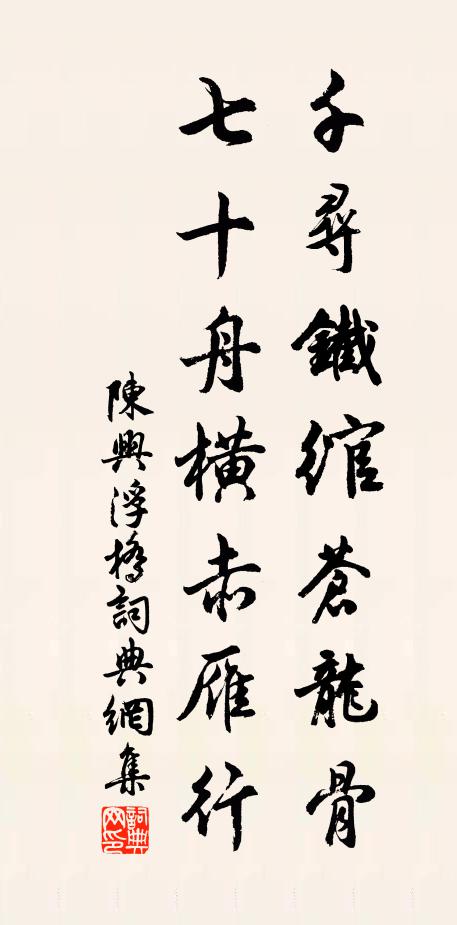 千尋鐵綰蒼龍骨
七十舟橫赤雁行
陳興浮橋詞典網集
詞典網印